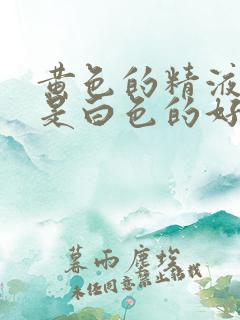 黄色的精液
是白色的好
暮雨尘埃
未经同意禁止搭载